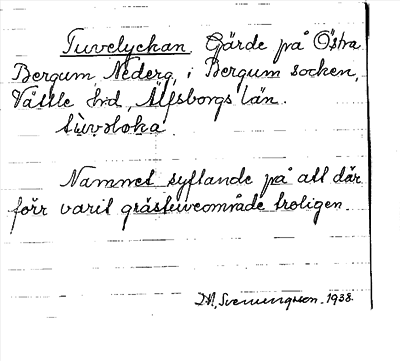 Tuvelyckan Gärde på Östra
Bergum Nederg, i Bergum socken,
Vättle hd, Älfsborgs län.
tùvəlɔka.
Namnet syftande på att där
förr varit grästuveområde troligen.
Svenungsson. 1938.